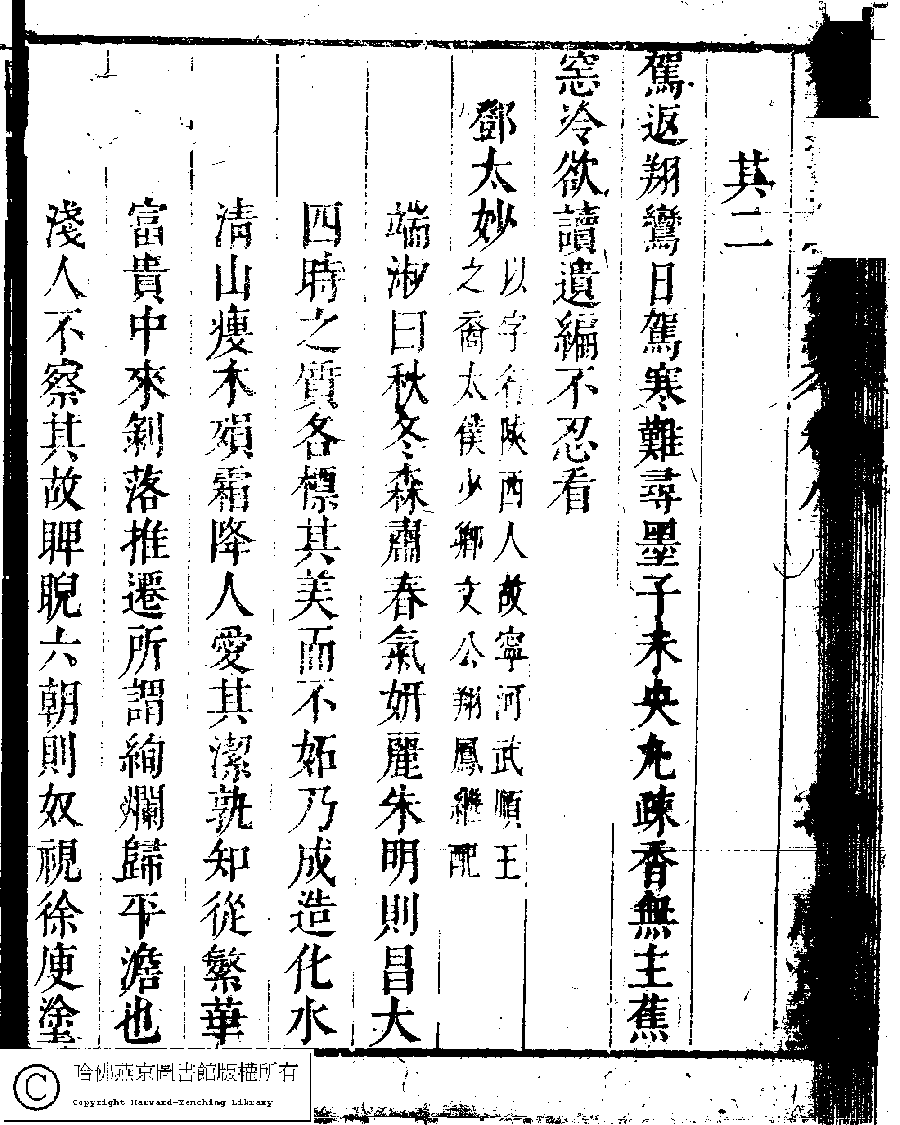 其二
駕返翔鸞日駕寒難尋墨子未央丸疎香無主蕉
窓冷欲讀遺編不忍看
鄧太妙
以字行陝西人故寧河武順王
之裔太僕少卿文公翔鳳繼配
端淑曰秋冬森肅春氣妍麗朱明則昌大
四時之質各標其美而不妬乃成造化水
清山瘦木殞霜降人愛其潔孰知從繁華
富貴中來剝落推遷所謂絢爛歸平澹也
淺人不察其故睥睨六朝則奴視徐庾塗
哈佛燕京圖書館版權所有
Copyright Harvard-Yenching Library